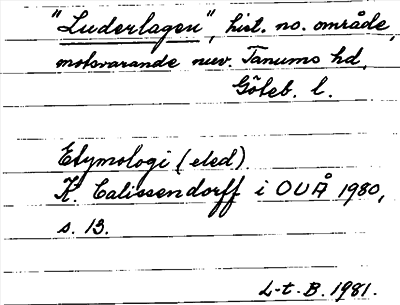 "Luderlagen", hist. no. område,
motsvarande nuv. Tanums hd,
Göteb. l.
Etymologi (eled).
K. Calissendorff i OUÅ 1980,
s. 13.
L-t. B. 1981.